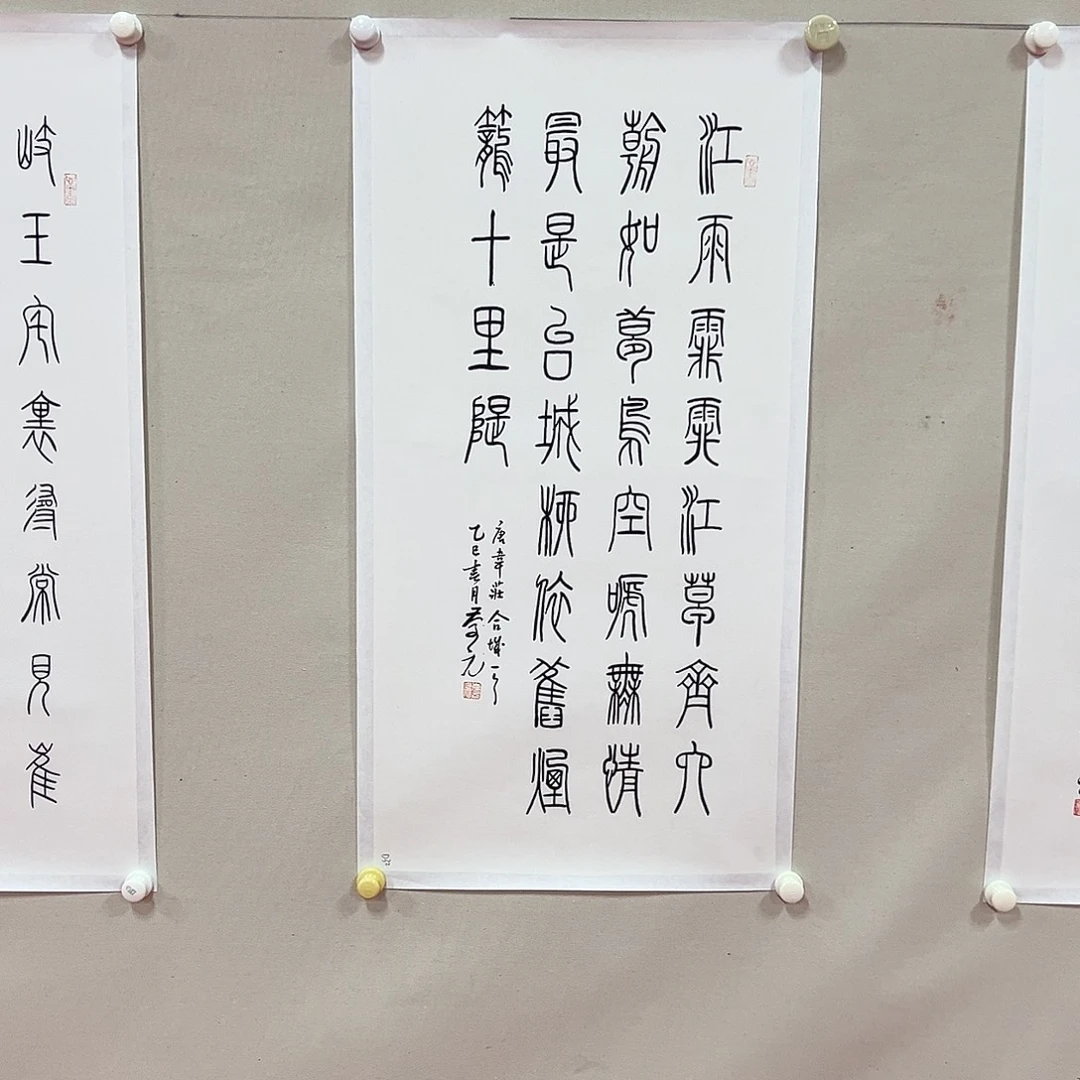 江雨霏霏江草齊六
朝如夢鳥空嗁無情
最是台城柳依舊煙
籠十里隄
唐韋莊台城一首
乙巳春月
岐王宅裏尋常見崔